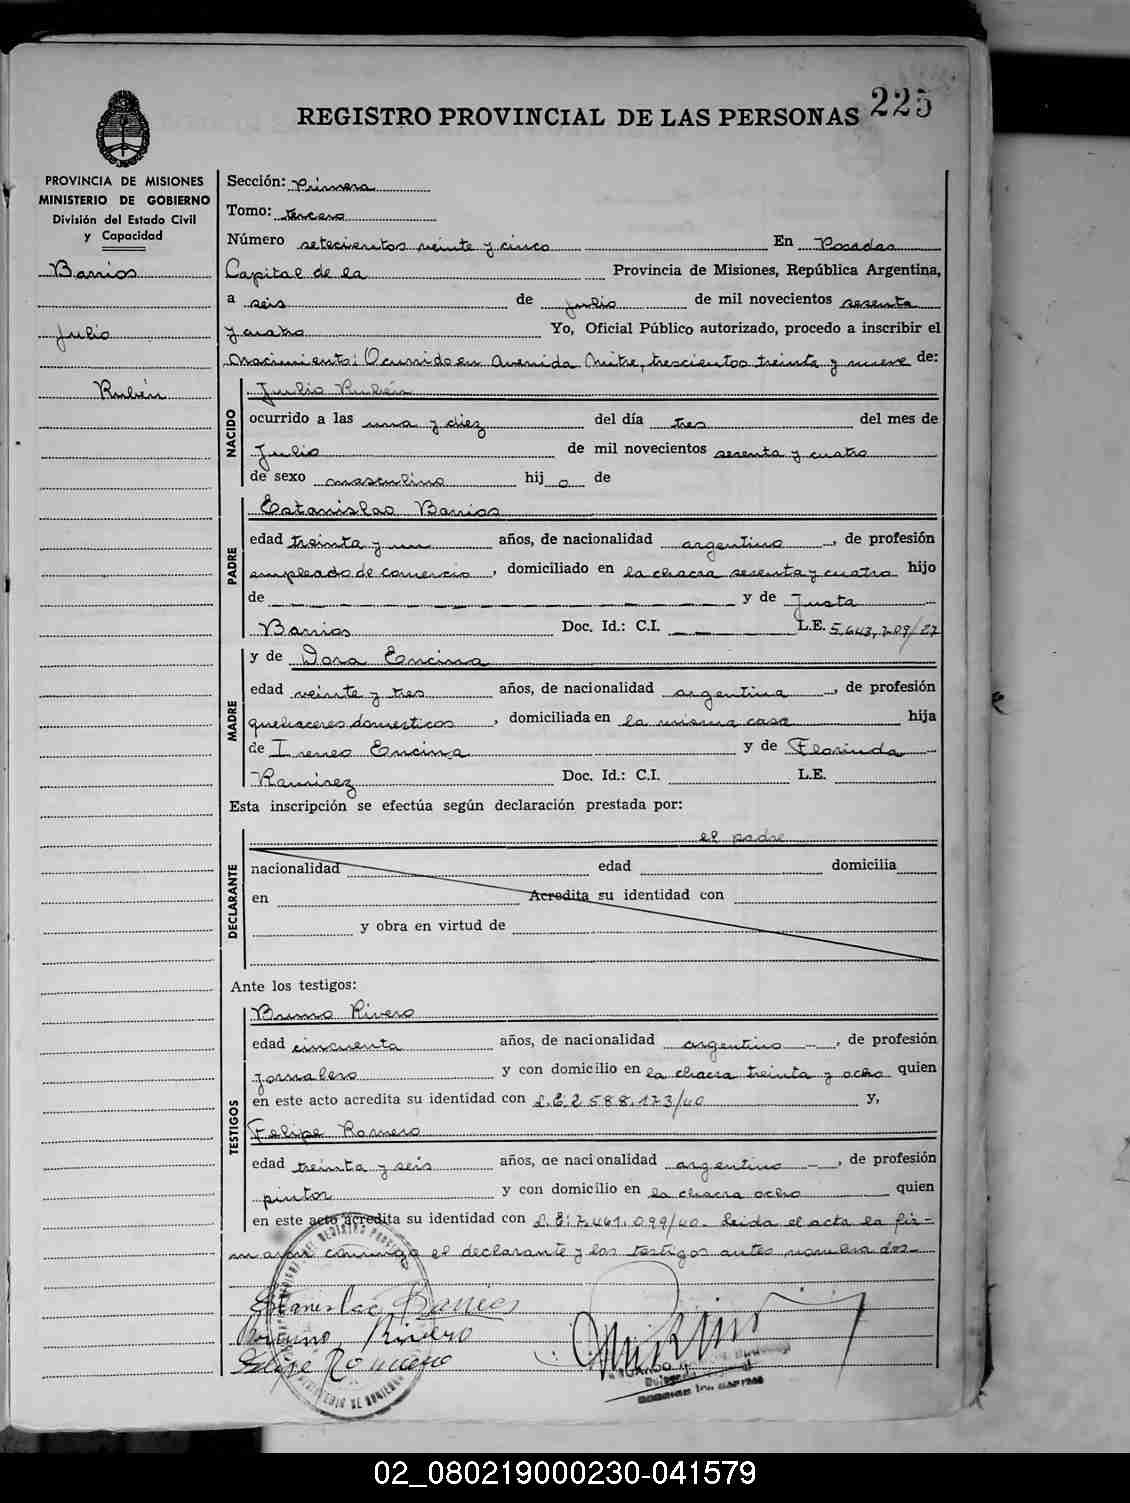 REGISTRO PROVINCIAL DE LAS PERSONAS 225
PROVINCIA DE MISIONES
MINISTERIO DE GOBIERNO
División del Estado Civil
y Capacidad
Barrios
Julio
Rubén
Sección: Primera
Tomo: tercero
Número setecientos veinte y cinco En Posadas
Capital de la Provincia de Misiones, República Argentina,
a seis de julio de mil novecientos sesenta
y cuatro Yo, Oficial Público autorizado, procedo a inscribir el
nacimiento: Ocurrido en Avenida Mitre, trescientos treinta y nueve de:
NACIDO
Julio Rubén
ocurrido a las una y diez del día tres del mes de
Julio de mil novecientos sesenta y cuatro
de sexo masculino hijo de
PADRE
Estanislao Barrios
edad treinta y un años, de nacionalidad argentino, de profesión
empleado de comercio, domiciliado en la chacra sesenta y cuatro hijo
de y de Justa
Barrios Doc. Id.: C.I. L.E. 5.643.209/27
MADRE
y de Dora Encina
edad veinte y tres años, de nacionalidad argentina, de profesión
quehaceres domesticos, domiciliada en la misma casa hija
de Ireneo Encina y de Florinda
Ramirez Doc. Id.: C.I. L.E.
Esta inscripción se efectúa según declaración prestada por:
DECLARANTE
el padre
nacionalidad edad domicilia
en Acredita su identidad con
y obra en virtud de
Ante los testigos:
TESTIGOS
Bruno Rivero
edad cincuenta años, de nacionalidad argentino, de profesión
jornalero y con domicilio en la chacra treinta y ocho quien
en este acto acredita su identidad con L.E 2.588.173/40 y,
Felipe Romero
edad treinta y seis años, de nacionalidad argentino, de profesión
pintor y con domicilio en la chacra ocho quien
en este acto acredita su identidad con L.E: 7.461.099/40. Leida el acta la fir=
man conmigo el declarante y los testigos antes nombrados
Estanislao Barrios
Rivero
Felipe Romero
02_080219000230-041579